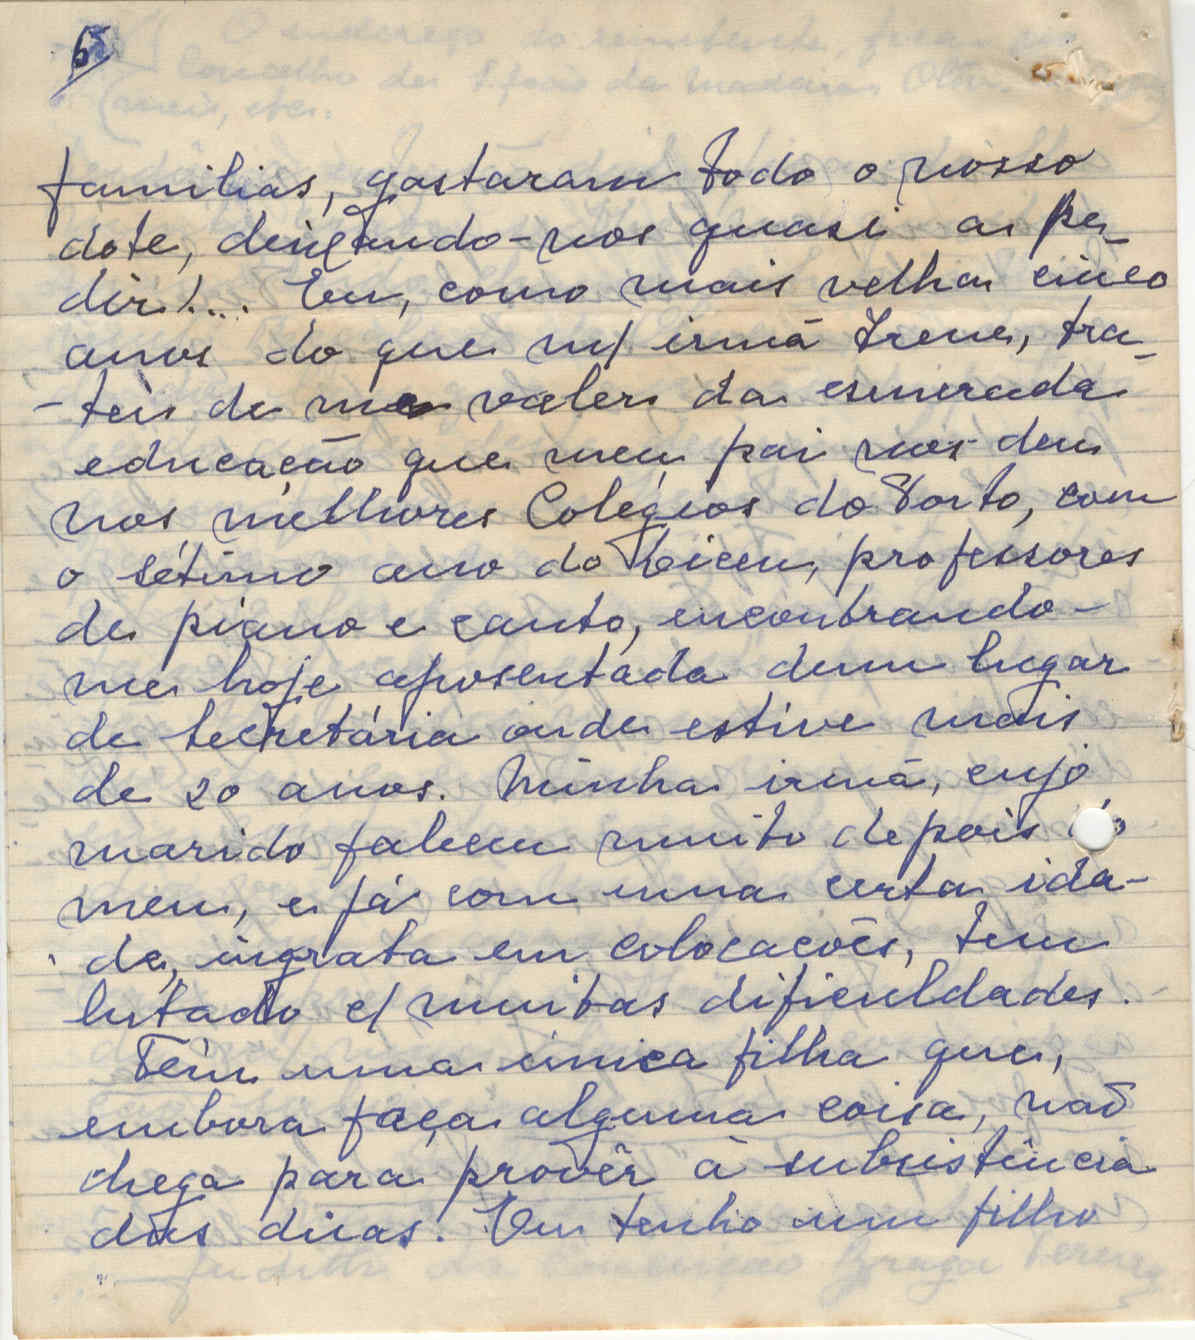 6
famílias, gastaram todo o nosso
dote, deixando-nos quasi a pe-
dir!... Eu, como mais velha cinco
anos do que m/ irmã Irene, tra-
-tei de me valer da esmerada
educação que meu pai nos deu
nos melhores Colégios do Porto, com
o sétimo ano do Liceu, professores
de piano e canto, encontrando-
me hoje aposentada dum lugar
de secretária onde estive mais
de 20 anos. Minha irmã, cujo
marido faleceu muito depois do
meu, e já com uma certa ida-
de, ingrata em colocações, tem
lutado c/ muitas dificuldades.
Tem uma única filha que,
embora faça alguma coisa, não
chega para provêr à subsistência
das duas. Eu tenho um filho